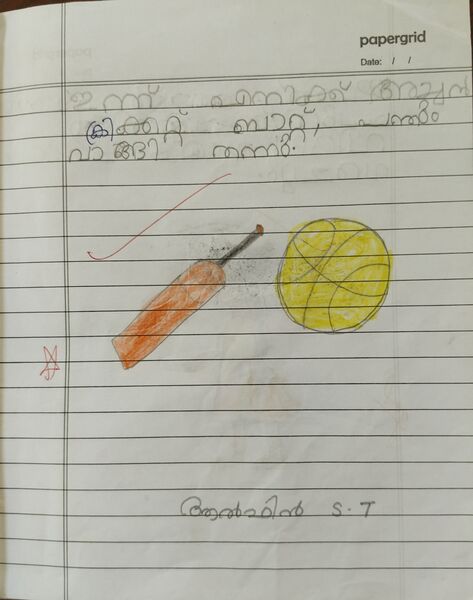 papergrid
Date: / /
ഇന്ന് എനിക്ക് അച്ഛൻ
ക്രിക്കറ്റ് ബാറ്റ്, പന്തും
വാങ്ങി തന്നു.
ആൽഫിൻ S.T